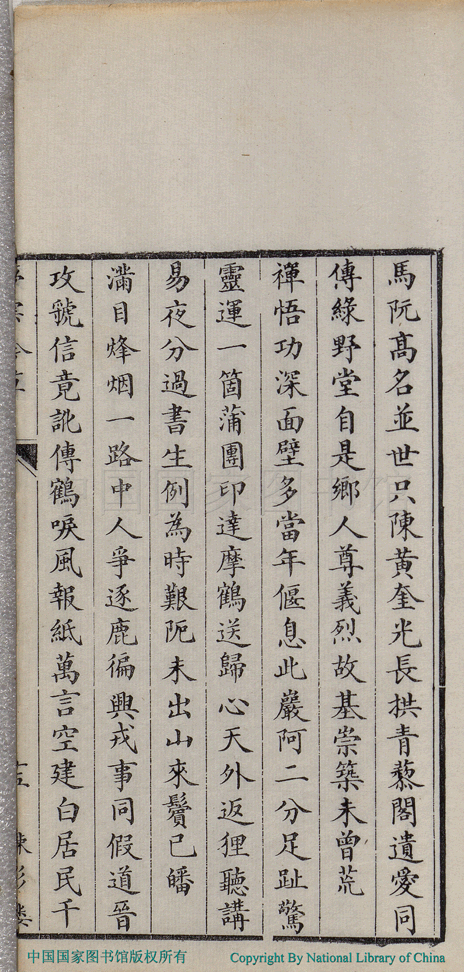 馬阮高名並世只陳黃奎光長拱青藜閣遺愛同
傳綠野堂自是鄉人尊義烈故基崇築未曾荒
禪悟功深面壁多當年偃息此巖阿二分足趾驚
靈運一箇蒲團印達摩鶴送歸心天外返狸聽講
易夜分過書生例為時艱阨未出山來鬢已皤
滿目烽烟一路中人爭逐鹿徧興戎事同假道晉
攻虢信竟訛傳鶴唳風報紙萬言空建白居民千
中国国家图书馆版权所有
Copyright By National Library of China